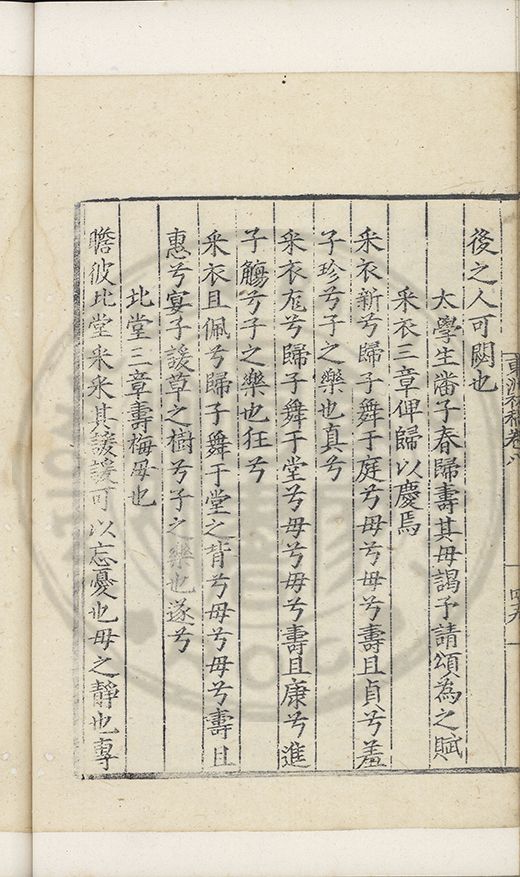 後之人可闕也
太學生潘子春歸壽其母謁予請頌為之賦
采衣三章俾歸以慶焉
采衣新兮歸子舞于庭兮母兮母兮壽且貞兮羞
子珍兮子之樂也真兮
采衣尨兮歸子舞于堂兮母兮母兮壽且康兮進
子觴兮子之樂也狂兮
采衣且佩兮歸子舞于堂之背兮母兮母兮壽且
惠兮宴子諼草之樹兮子之樂也遂兮
北堂三章壽梅母也
瞻彼北堂采采其諼諼可以忘憂也母之靜也專